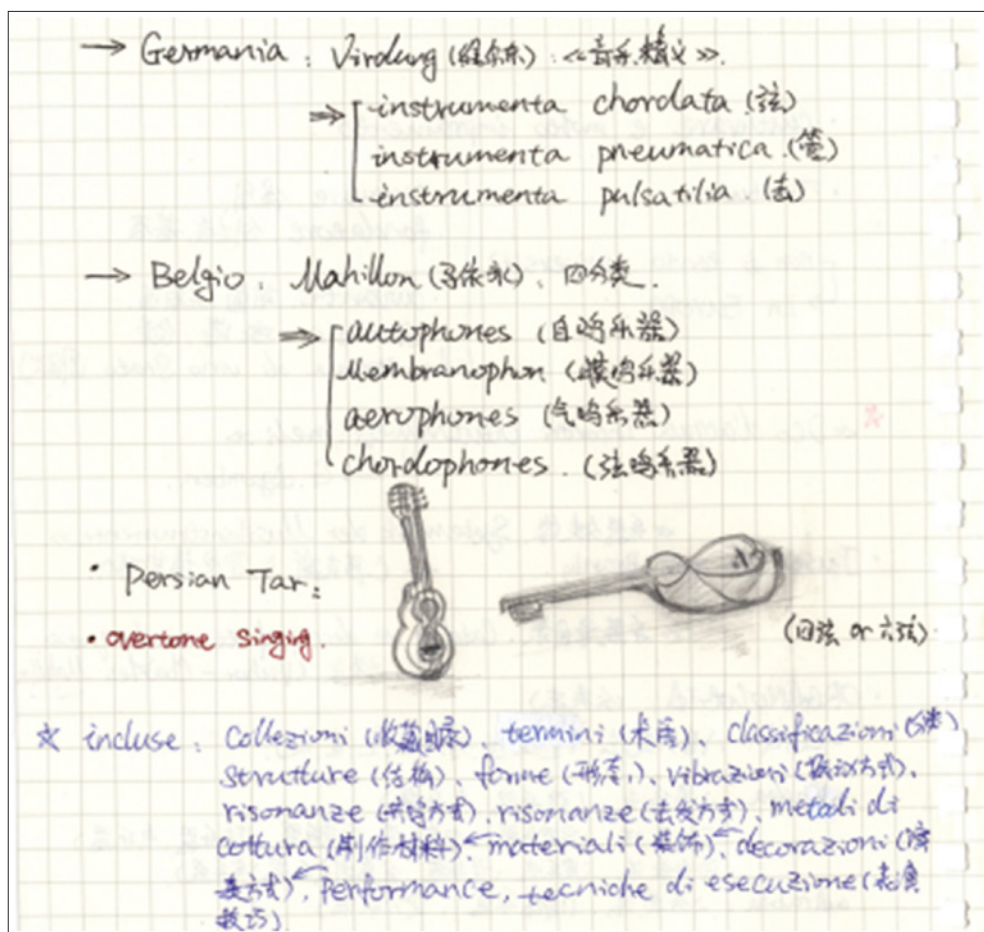 → Germania : Virdung (维尔东) : 《音乐精义》.
⇒ instrumenta chordata (弦)
instrumenta pneumatica (管)
instrumenta pulsatilia (击)
→ Belgio . Mahillon (马依永) . 四分类 .
⇒ autophones (自鸣乐器)
Membranophon (膜鸣乐器)
aerophones (气鸣乐器)
chordophones . (弦鸣乐器)
· Persian Tar :
· overtone singing.
(四弦 or 六弦)
☆ incluse : Collezioni (收藏目录) 、 termini (术语) 、 classificazioni (分类)
strutture (结构) 、 forme (形态) 、 vibrazioni
risonanze (共鸣方式) 、 risonanze (击发方式) 、 metodi di
cottura (制作材料) ← materiali (装饰) ← decorazioni (演
奏方式) ← performance, tecniche di esecuzione (表演
技巧)